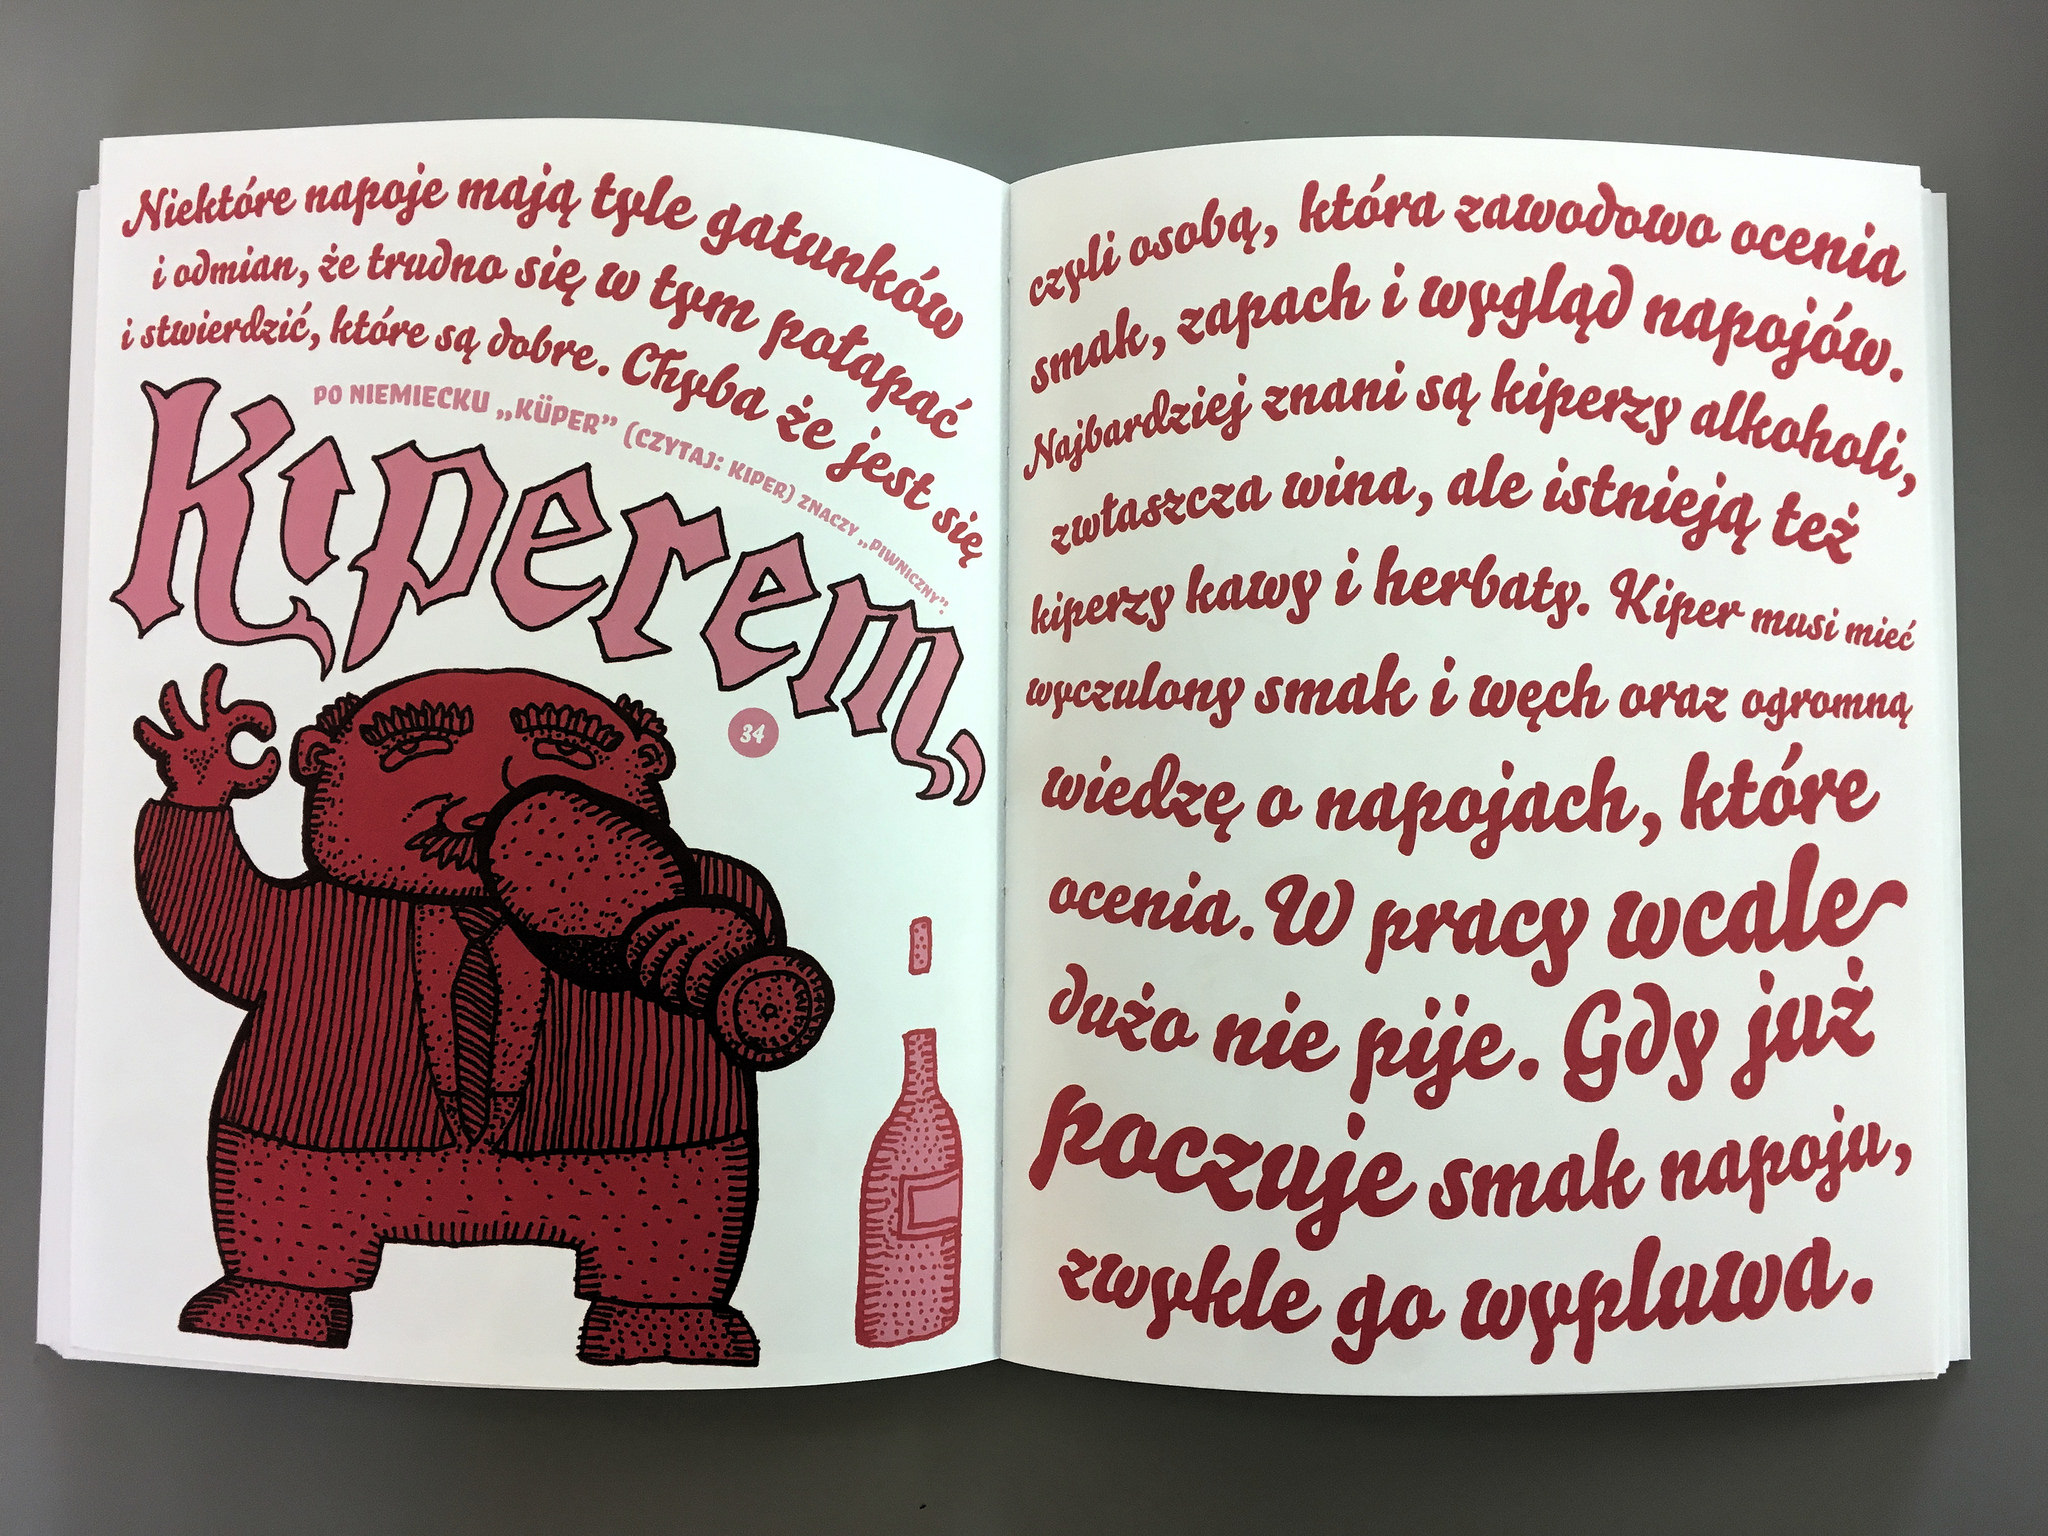 Niektóre napoje mają tyle gatunków
i odmian, że trudno się w tym połapać
i stwierdzić, które są dobre. Chyba że jest się
PO NIEMIECKU „KÜPER” (CZYTAJ: KIPER) ZNACZY „PIWNICZNY”.
Kiperem,
34
czyli osobą, która zawodowo ocenia
smak, zapach i wygląd napojów.
Najbardziej znani są kiperzy alkoholi,
zwłaszcza wina, ale istnieją też
kiperzy kawy i herbaty. Kiper musi mieć
wyczulony smak i węch oraz ogromną
wiedzę o napojach, które
ocenia. W pracy wcale
dużo nie pije. Gdy już
poczuje smak napoju,
zwykle go wypluwa.